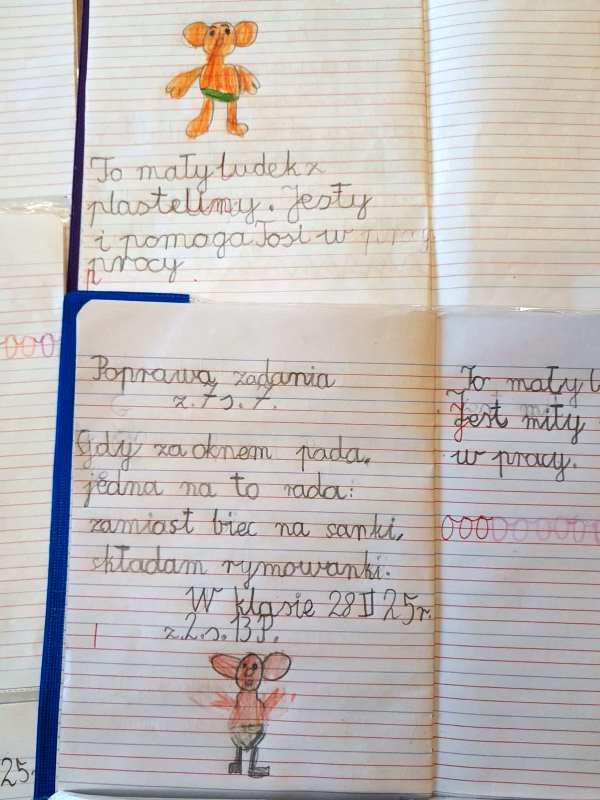 To mały ludek z
plasteliny. Jesły
i pomaga Tosi w pracy
procy
Poprawa zadania
z. 7 s. 7.
Gdy za oknem pada,
jedna na to rada:
zamiast biec na sanki,
składam rymowanki.
W klasie 28 II 25 r.
z. 2. s. 13 P.
To mały l
Jest miły
w pracy.
25.